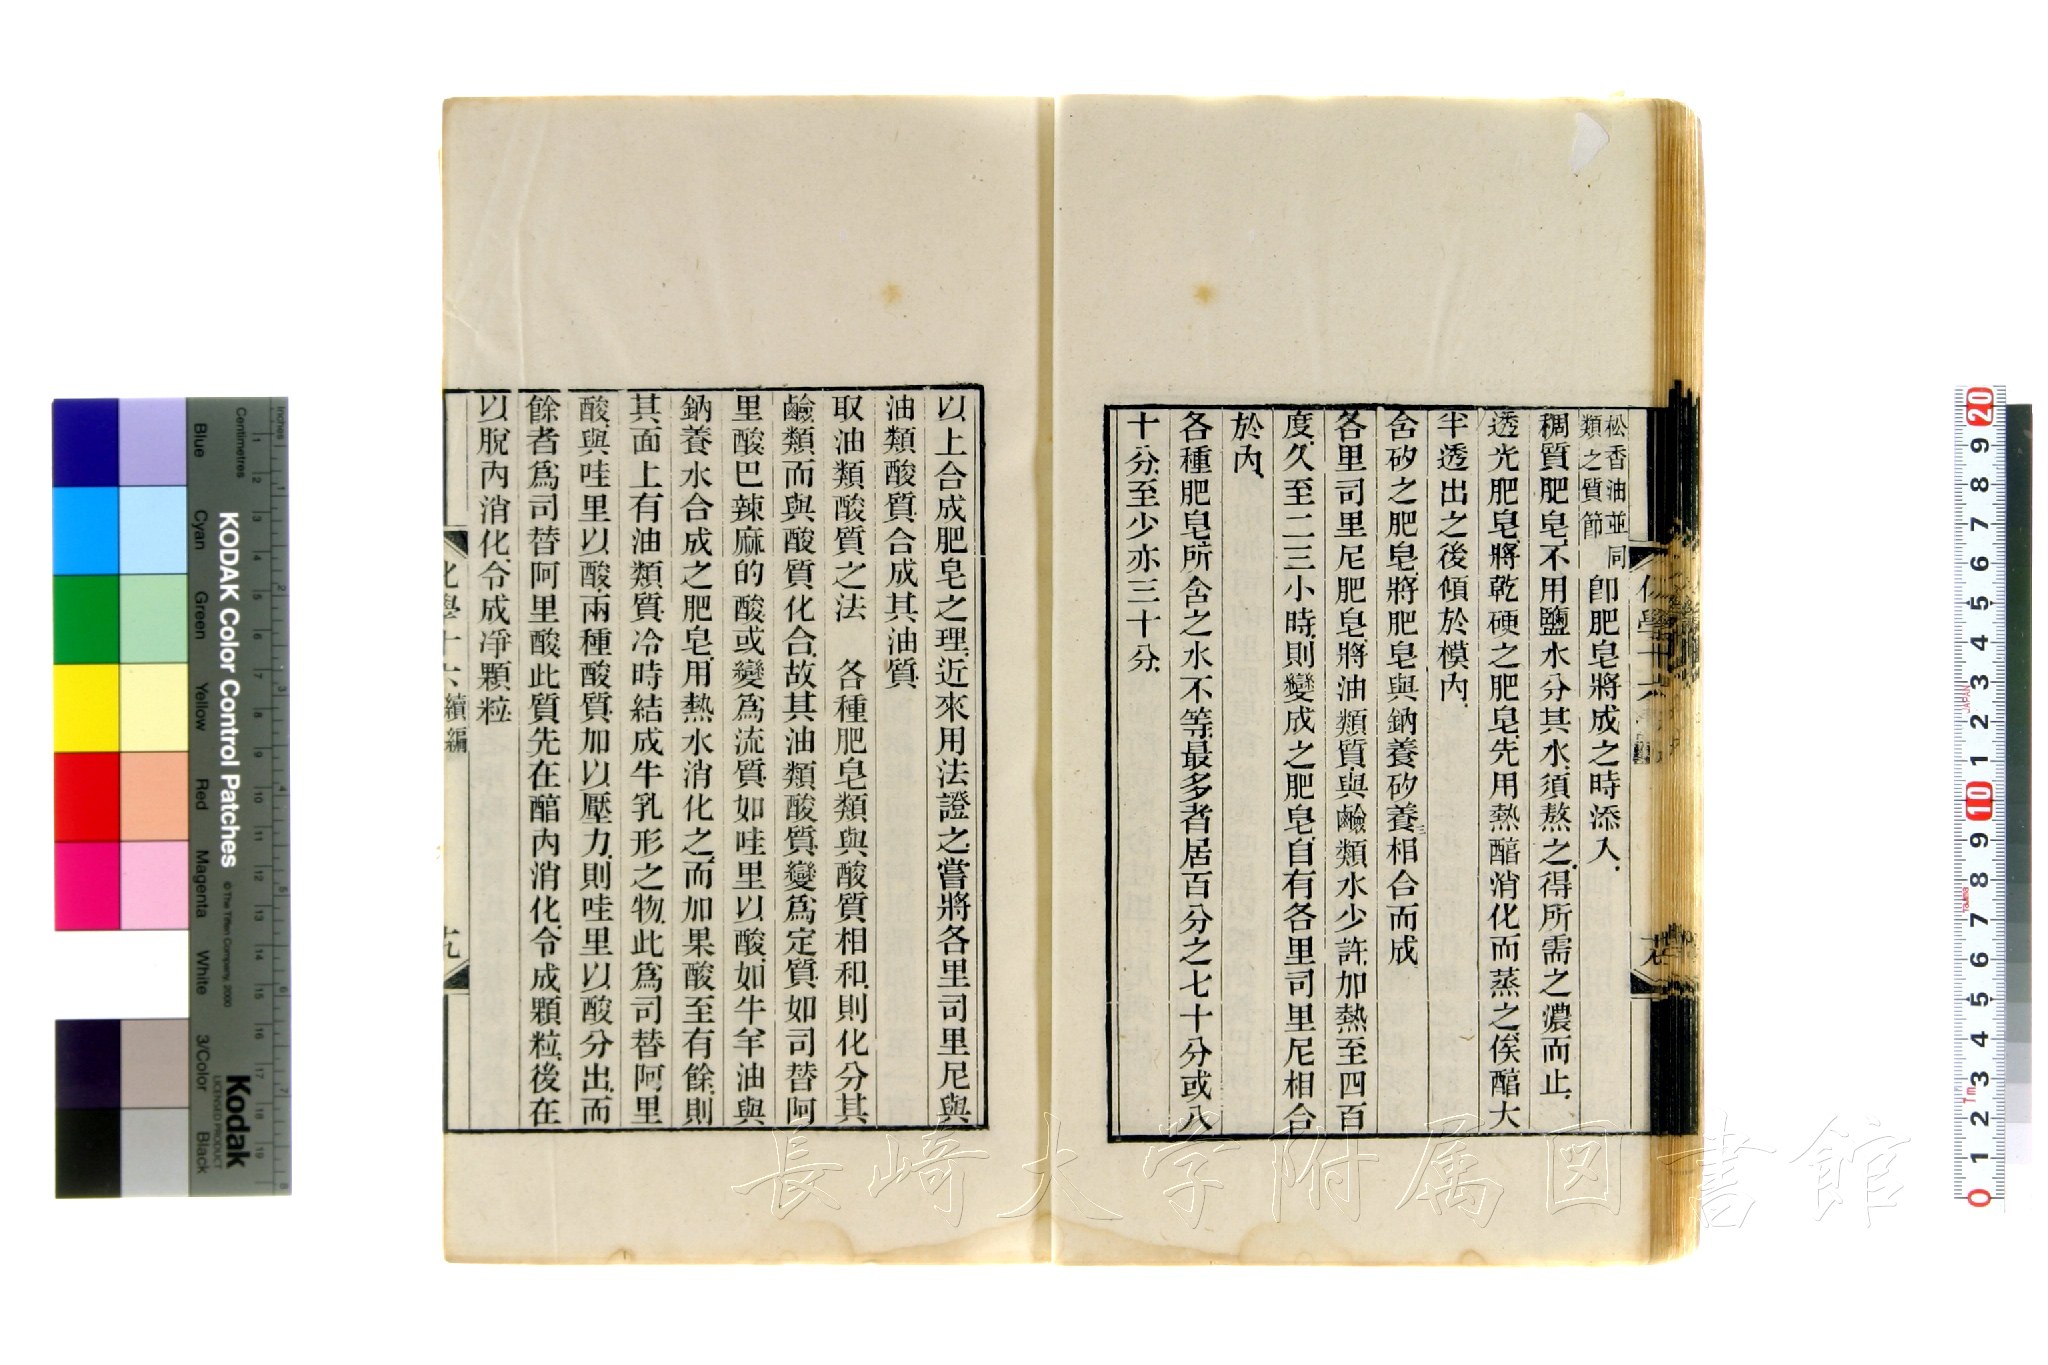 松香油並同
類之質節
卽肥皂將成之時添入
稠質肥皂不用鹽水分其水須熬之得所需之濃而止
透光肥皂將乾硬之肥皂先用熱醕消化而蒸之俟醕大
半透出之後傾於模內
含矽之肥皂將肥皂與鈉養矽養三相合而成
各里司里尼肥皂將油類質與鹼類水少許加熱至四百
度久至二三小時則變成之肥皂自有各里司里尼相合
於內
各種肥皂所含之水不等最多者居百分之七十分或八
十分至少亦三十分
以上合成肥皂之理近來用法證之嘗將各里司里尼與
油類酸質合成其油質
取油類酸質之法　各種肥皂類與酸質相和則化分其
鹼類而與酸質化合故其油類酸質變爲定質如司替阿
里酸巴辣麻的酸或變爲流質如哇里以酸如牛羊油與
鈉養水合成之肥皂用熱水消化之而加果酸至有餘則
其面上有油類質冷時結成牛乳形之物此爲司替阿里
酸與哇里以酸兩種酸質加以壓力則哇里以酸分出而
餘者爲司替阿里酸此質先在醕內消化令成顆粒後在
以脫內消化令成淨顆粒
化學十六 續編
十九
長崎大学附属図書館
KODAK Color Control Patches
© The Tiffen Company, 2000
Kodak
LICENSED PRODUCT
Inches
Centimetres
Blue
Cyan
Green
Yellow
Red
Magenta
White
3/Color
Black